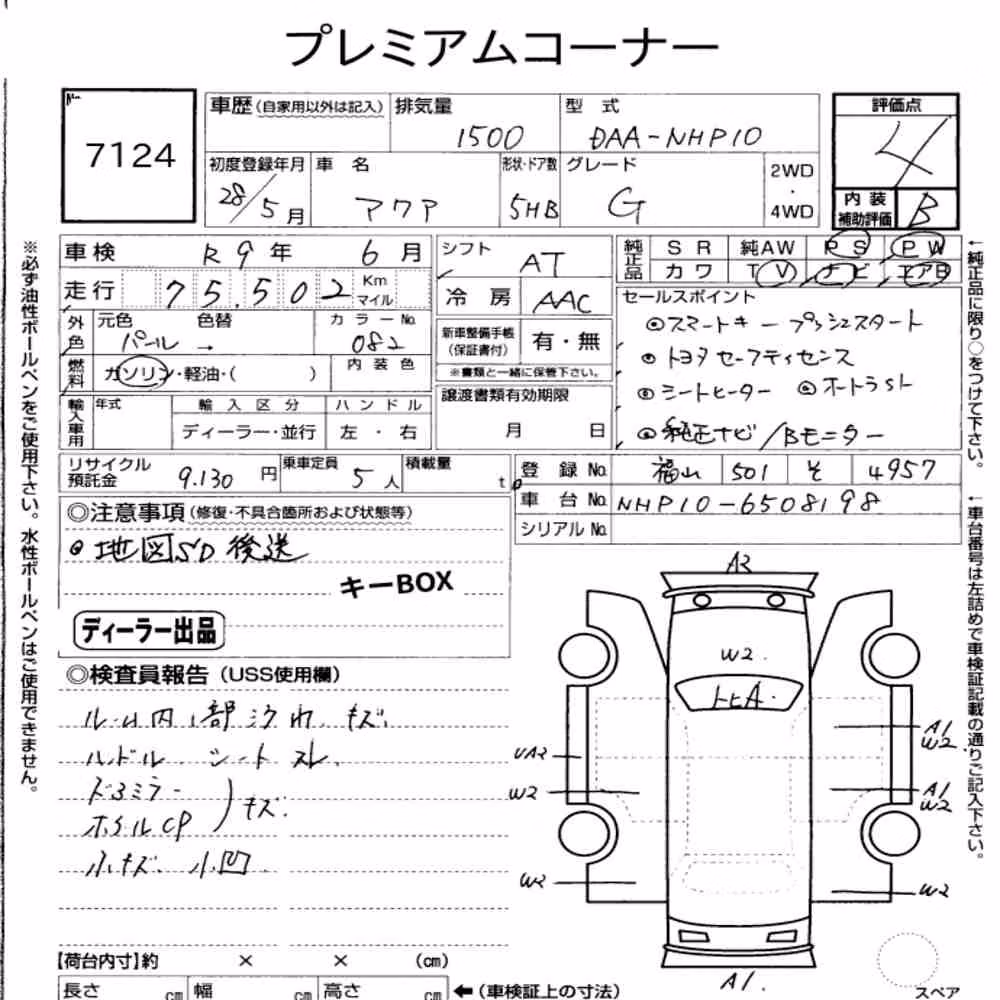 プレミアムコーナー
7124
車歴(自家用以外は記入) 排気量 1500 型式 DAA-NHP10
評価点 4
初度登録年月 28/5月 車名 アクア 形状・ドア数 5HB グレード G 2WD・4WD
内装補助評価 B
車検 R9年 6月
走行 75.502 Km マイル
外色 元色 パール → 色替 カラーNo. 082
燃料 ガソリン・軽油・( ) 内装色
輸入車用 年式 輸入区分 ハンドル
ディーラー・並行 左・右
シフト AT
冷房 AAC
新車整備手帳(保証書付) 有・無
※書類と一緒に保管下さい。
譲渡書類有効期限
月 日
純正品 SR 純AW PS PW
カワ TV ナビ エアB
セールスポイント
◎スマートキー プッシュスタート
◎トヨタセーフティセンス
◎シートヒーター ◎オートラSt
◎純正ナビ/Bモニター
リサイクル預託金 9.130円 乗車定員 5人 積載量 t
登録No. 福山 501 そ 4957
車台No. NHP10-6508198
シリアルNo.
◎注意事項(修復・不具合箇所および状態等)
◎地図SD後送
キーBOX
ディーラー出品
◎検査員報告(USS使用欄)
ルーム内1部汚れ、キズ、
ハンドル、シートスレ、
ドアミラー
ホイルCP
)キズ、
小キズ、小凹
【荷台内寸】約 × × (cm)
長さ cm 幅 cm 高さ cm ←(車検証上の寸法)
A2
W2
トヒA
A1
W2
A1
W2
UA2
W2
W2
W2
A1
スペア
※必ず油性ボールペンをご使用下さい。水性ボールペンはご使用できません。
←純正品に限り○をつけて下さい。
←車台番号は左詰めで車検証記載の通りご記入下さい。